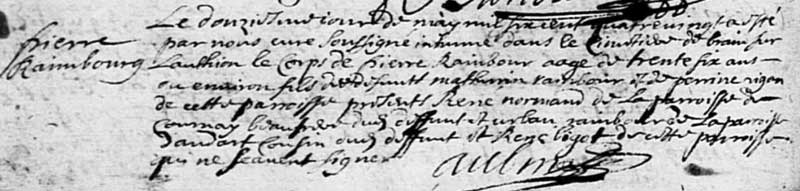 Le douziesme jour de may mil six cent quatre vingt a esté
pierre Raimbourg
par nous curé soussigné inhumé dans le Cimitiere de brain sur
Lauthion le Corps de pierre Raimbour aagé de trente six ans
ou environ fils de deffunts mathurin raimbour et de perrine rigon
de cette paroisse presents René normand de La parroisse de
Cornay beaufrere dud deffunt et urban raimbour de La paroisse
Daudart Cousin dud deffunt et René bigot de cette paroisse
qui ne scavent signer